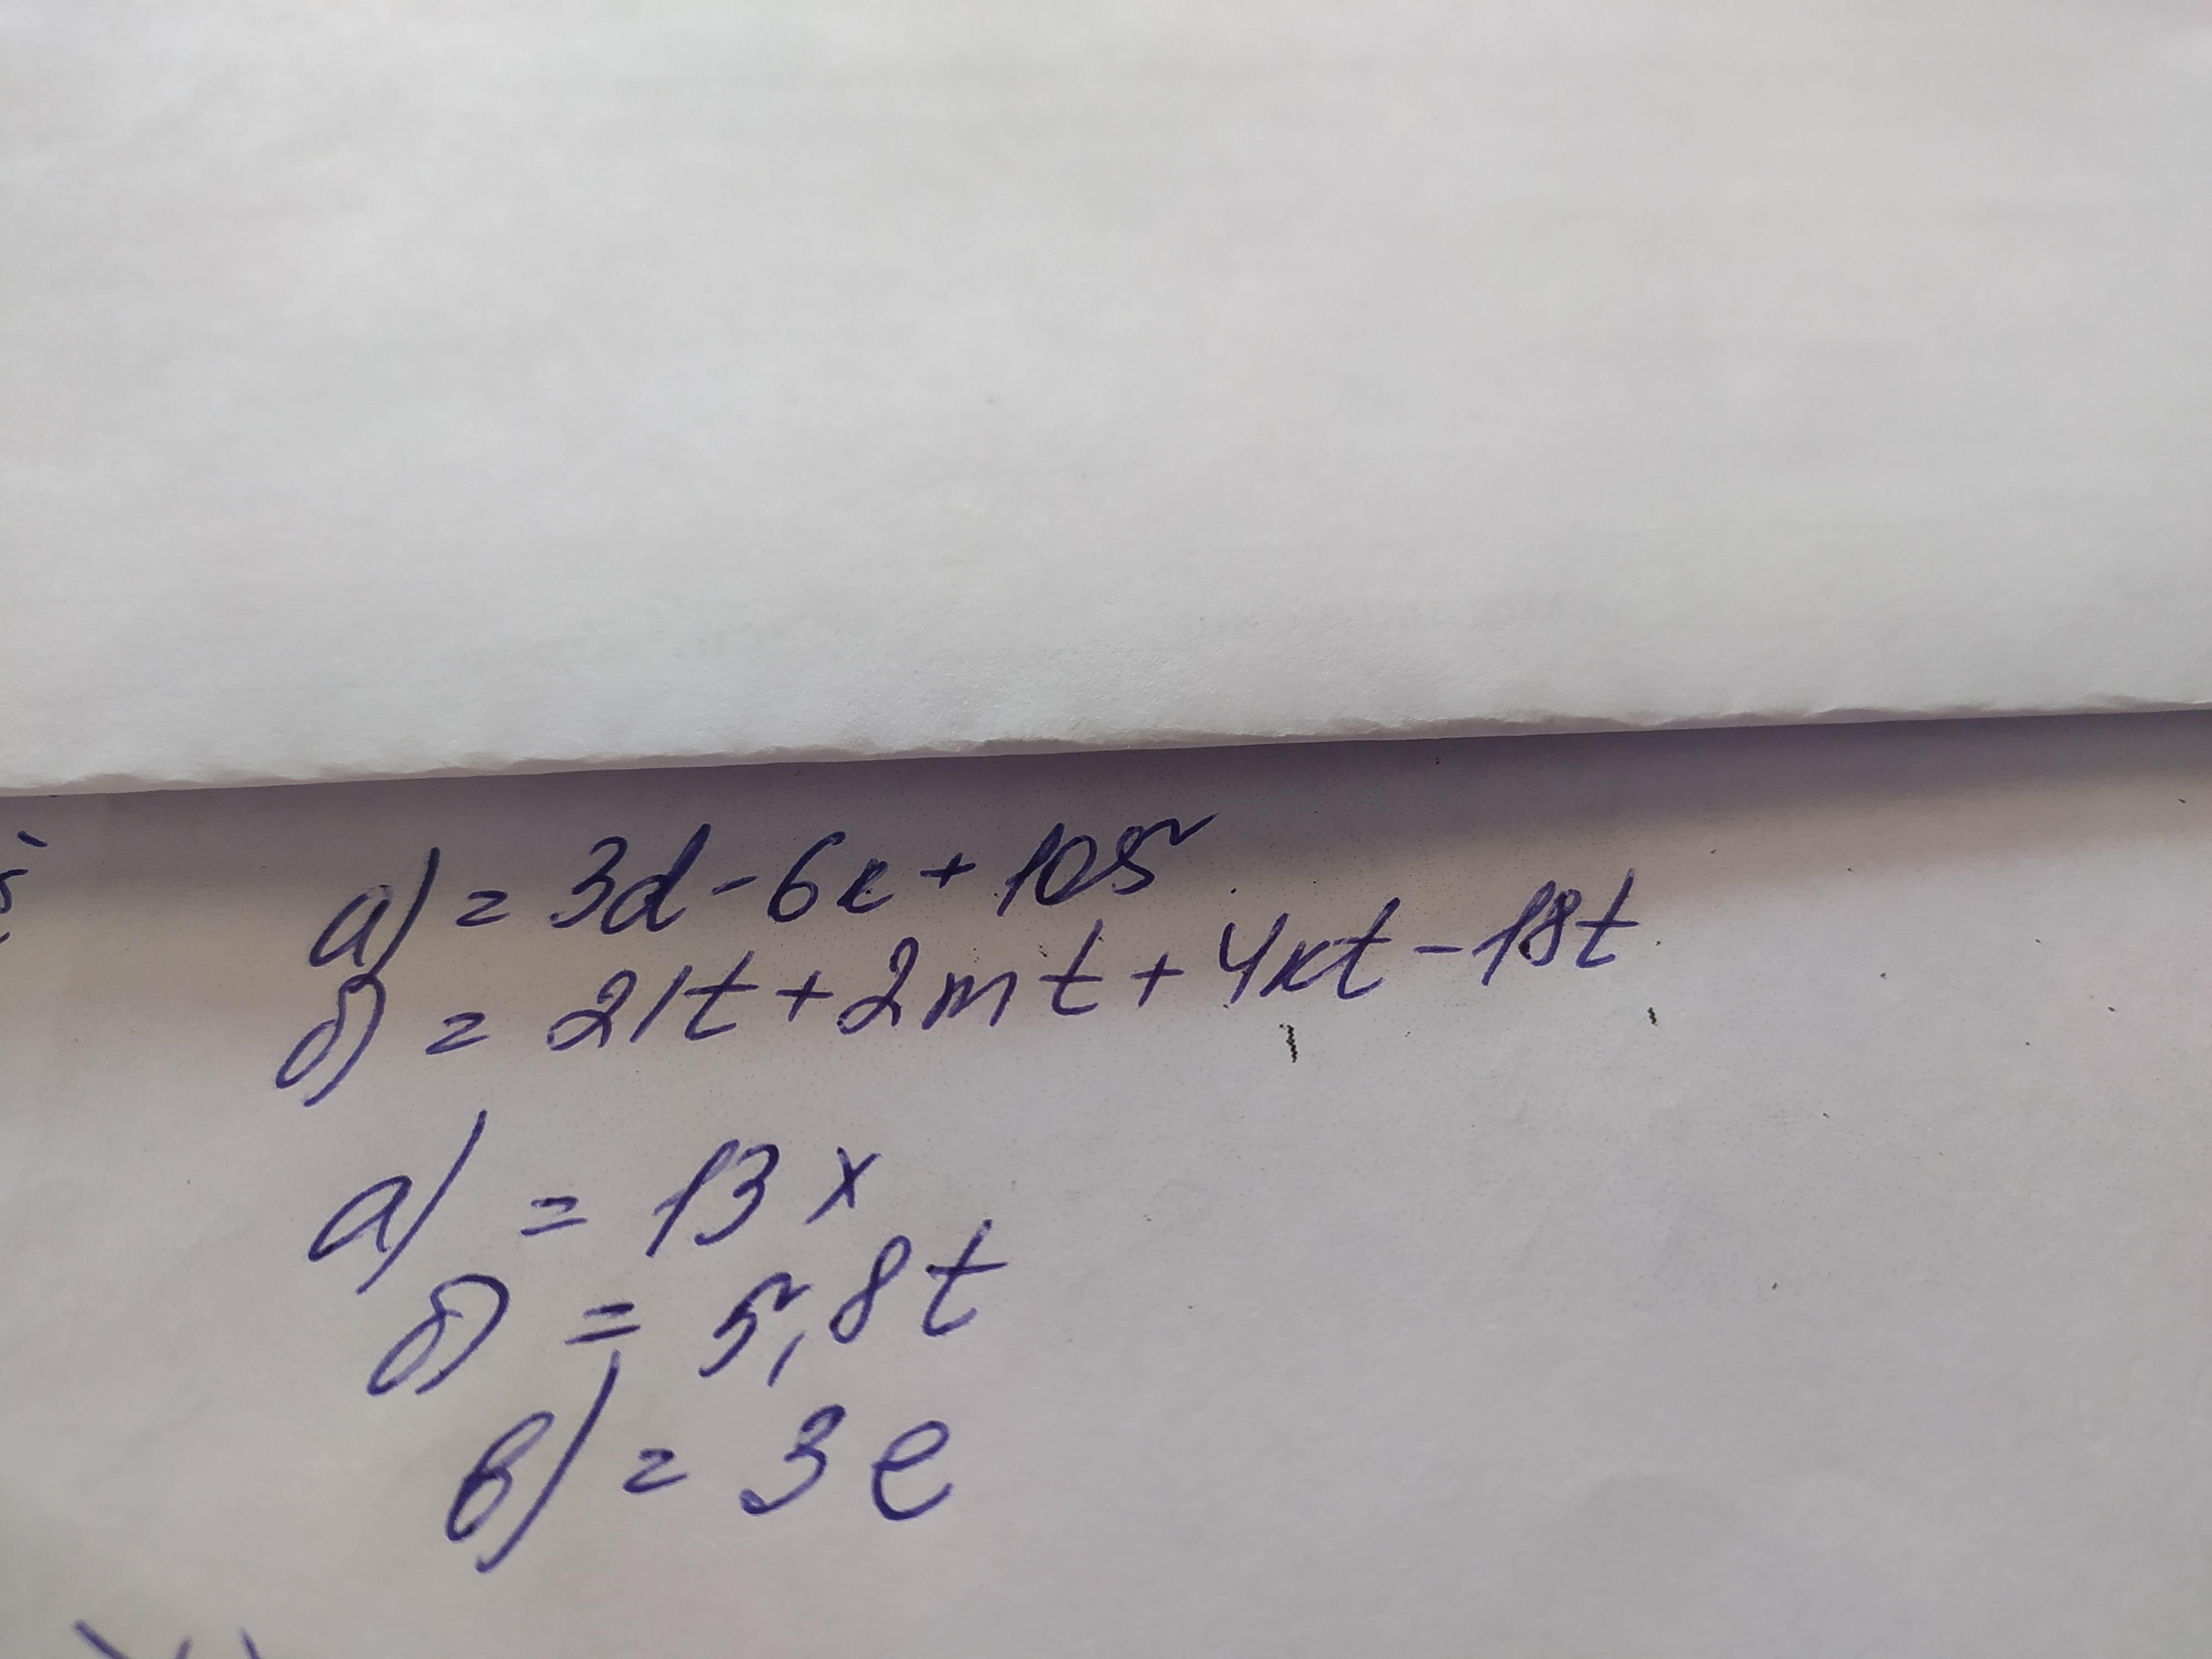 а) = 3d - 6к + 105
б) = 21t + 2mt + 4кt - 18t
а) = 13x
б) = 5,8t
в) = 3e